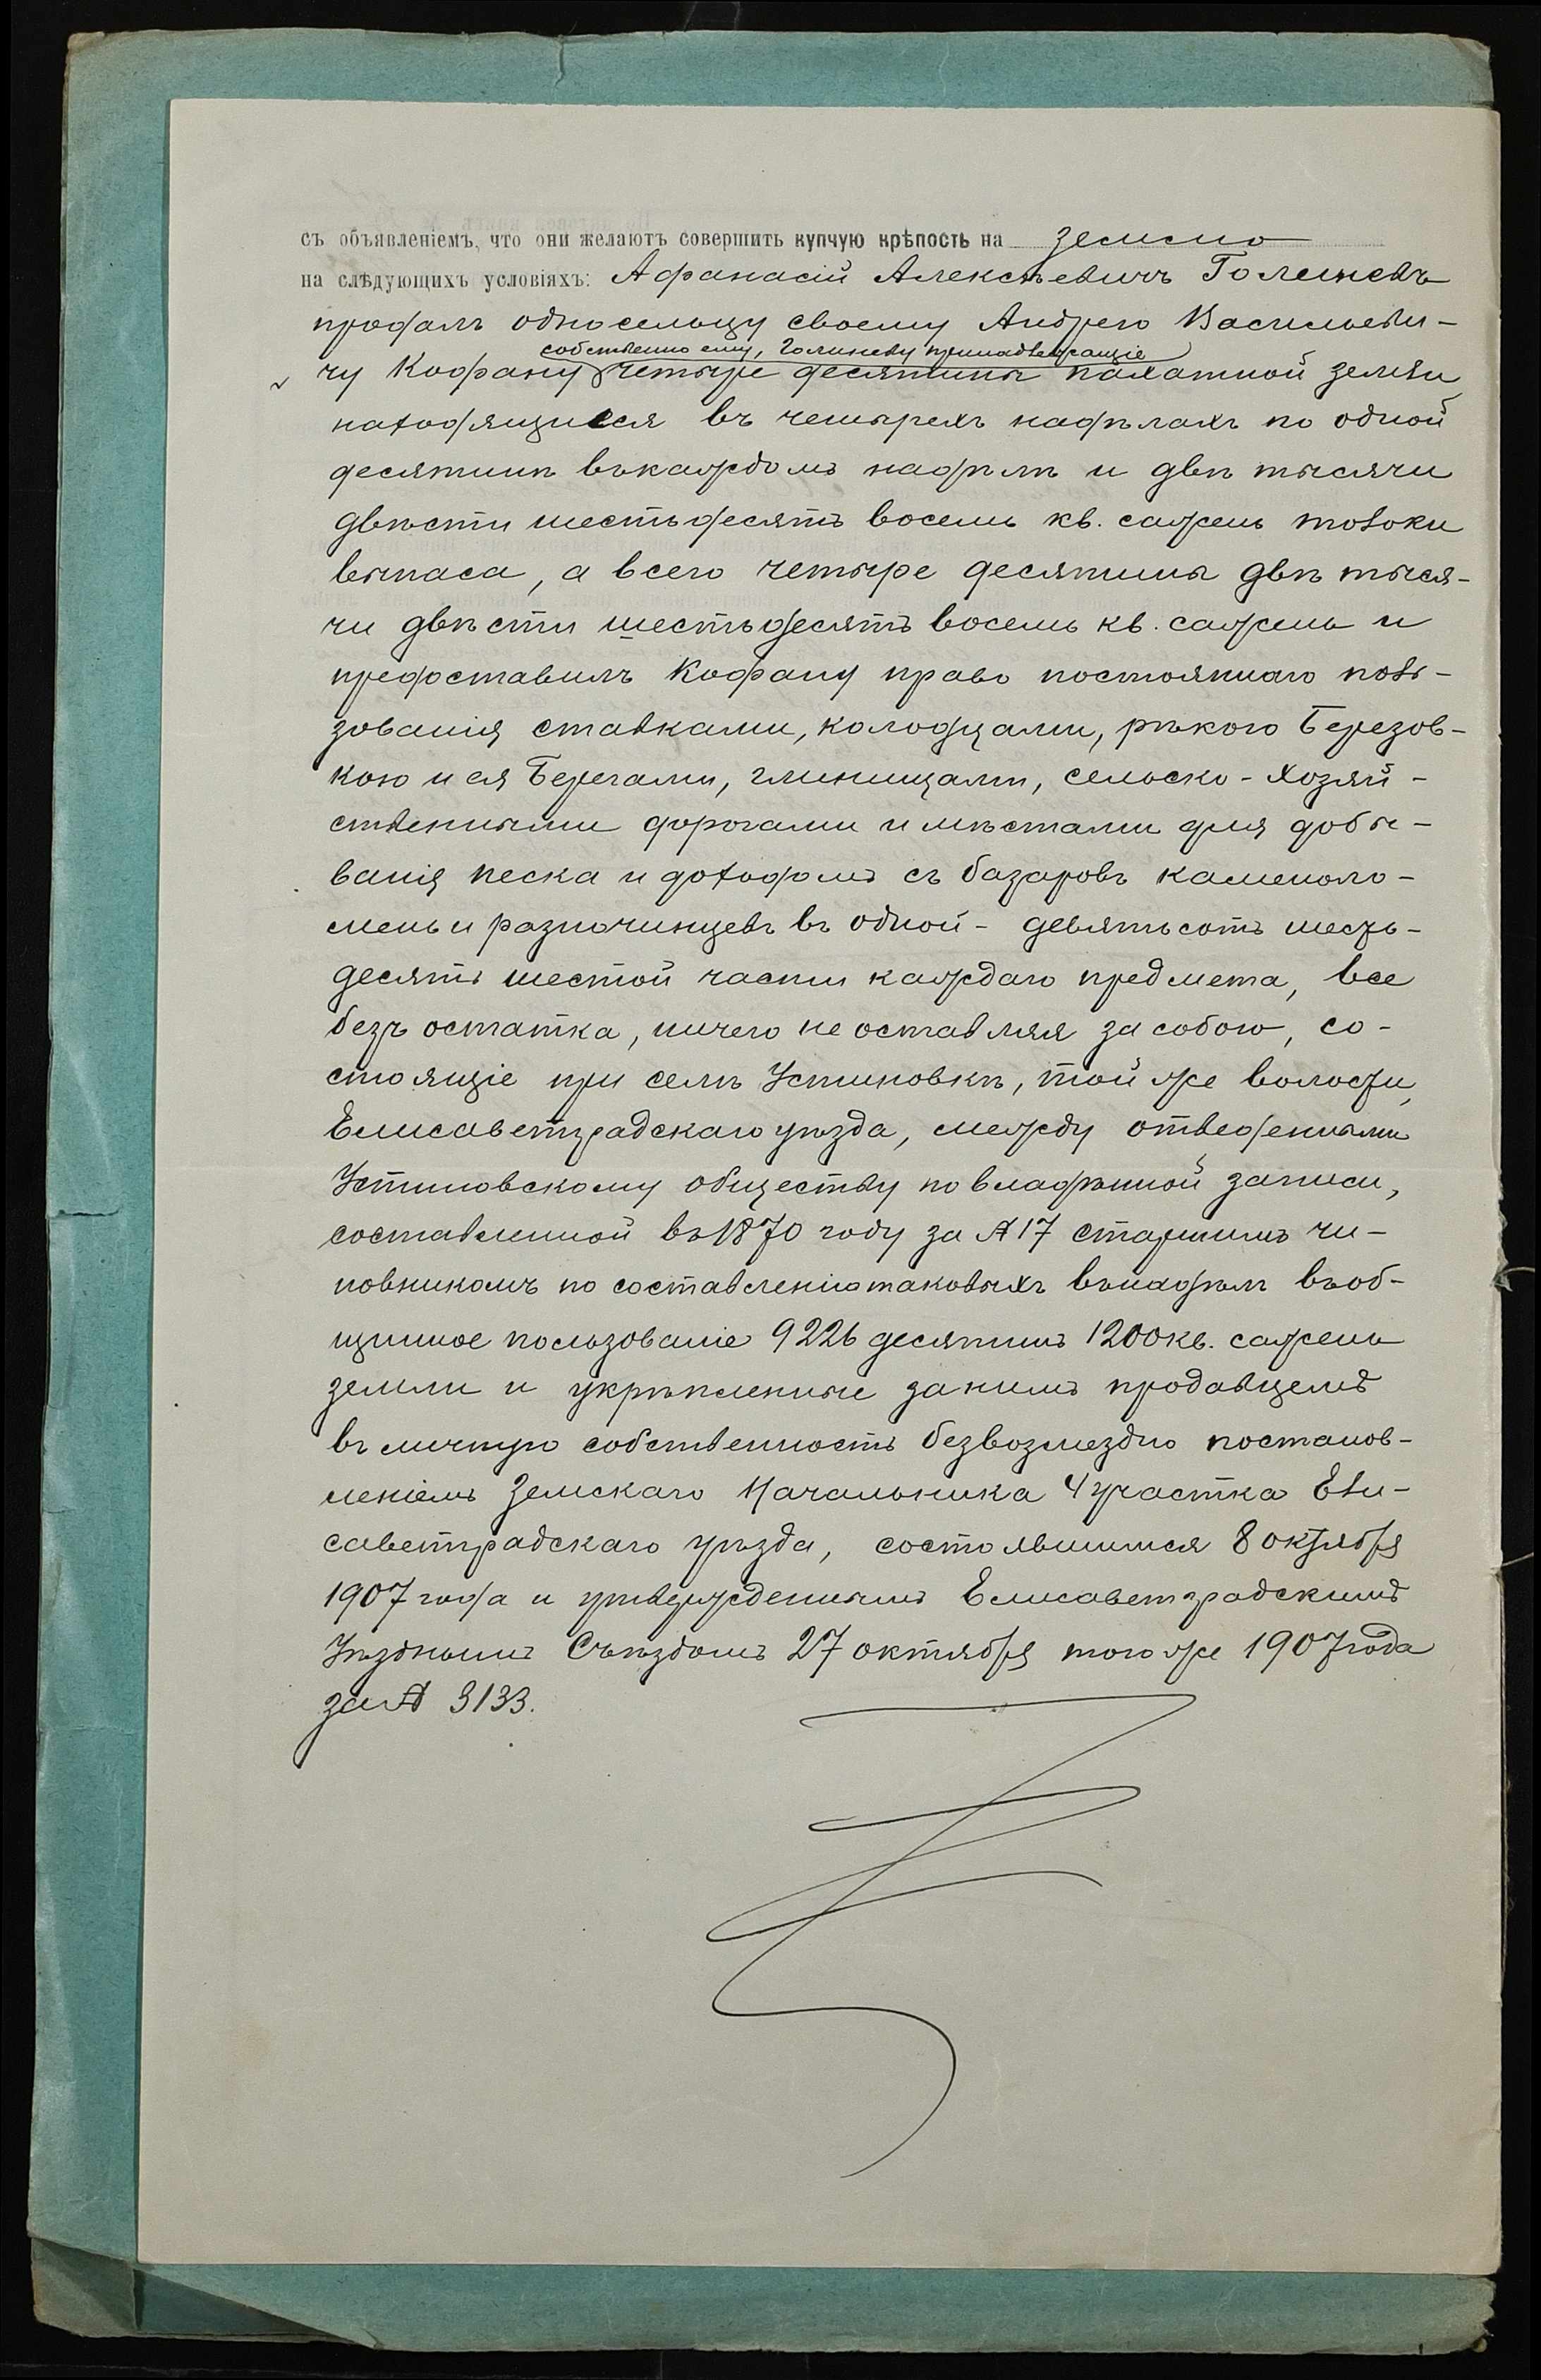 съ объявленіемъ, что они желаютъ совершить купчую крѣпость на землю
на слѣдующихъ условіяхъ: Афанасій Алексѣевичъ Голиневъ
продалъ односельцу своему Андрею Васильеви-
собственно ему, Голиневу принадлежащіе
чу Кодрану четыре десятины пахатной земли
находящиеся въ четырехъ надѣлахъ по одной
десятинѣ въ каждомъ надѣлѣ и двѣ тысячи
двѣсти шестьдесятъ восемь кв. сажень толоки
выпаса, а всего четыре десятины двѣ тыся-
чи двѣсти шестьдесятъ восемь кв. сажень и
предоставилъ право постояннаго поль-
зованія ставками, колодцами, рѣкою Березов-
кою и ея берегами, глинищами, сельско-хозяй-
ственными дорогами и мѣстами для добы-
ванія песка и доходомъ съ базаровъ каменоло-
мень и разночинцевъ въ одной- девятьсотъ шесть-
десятъ шестой части каждаго предмета, все
безъ остатка, ничего не оставляя за собою, со-
стоящіе при селѣ Устиновкѣ, той же волости,
Елисаветградскаго уѣзда, между отведенными
Устиновскому обществу по владѣнной записи,
составленной въ 1870 году за № 17 старшимъ чи-
новникомъ по составленію таковыхъ въ надѣлъ въ об-
щинное пользованіе 9226 десятинъ 1200 кв. сажень
земли и укрѣпленные за нимъ продавцемъ
въ личную собственность безвозмездно постанов-
леніемъ Земскаго Начальника 4 участка Ели-
саветградскаго уѣзда, состоявшимся 8 октября
1907 года и утвержденнымъ Елисаветградскимъ
Уѣзднымъ Съѣздомъ 27 октября того же 1907 года
за № 3133.